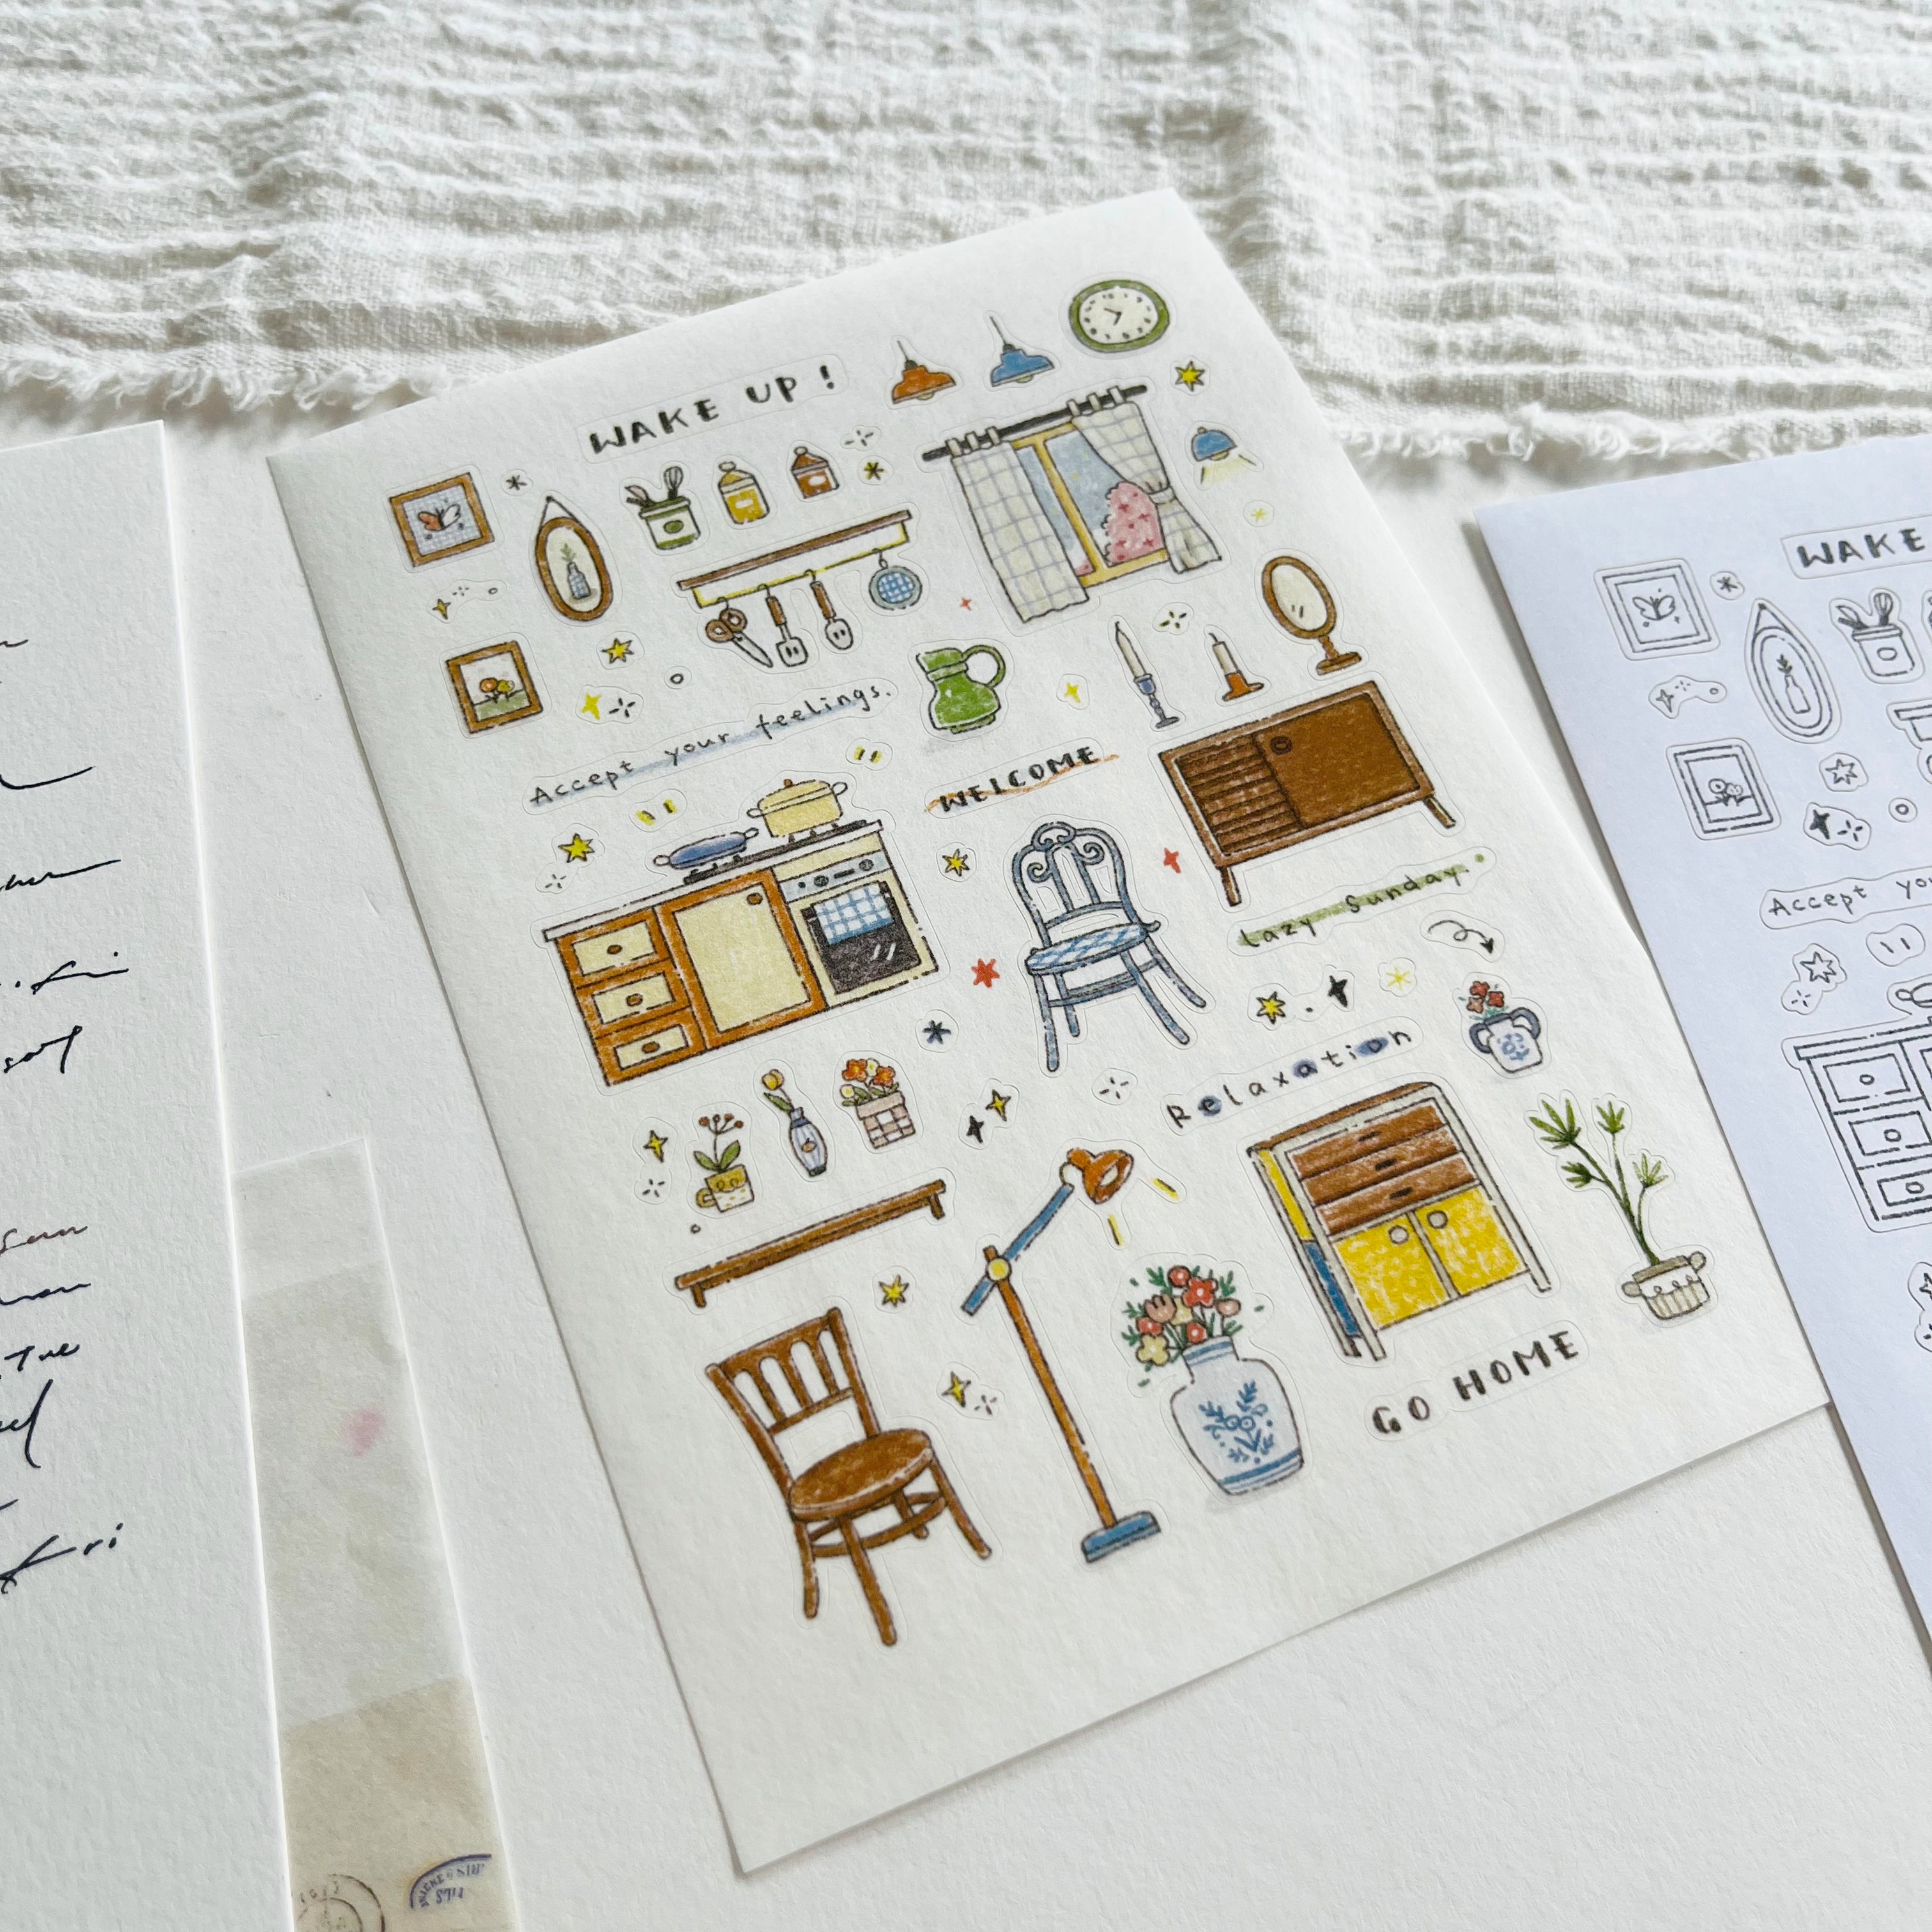 WAKE UP!
Accept your feelings.
WELCOME
Lazy Sunday.
Relaxation
GO HOME
WAKE
Accept
sat
Sun
Tue
Fri